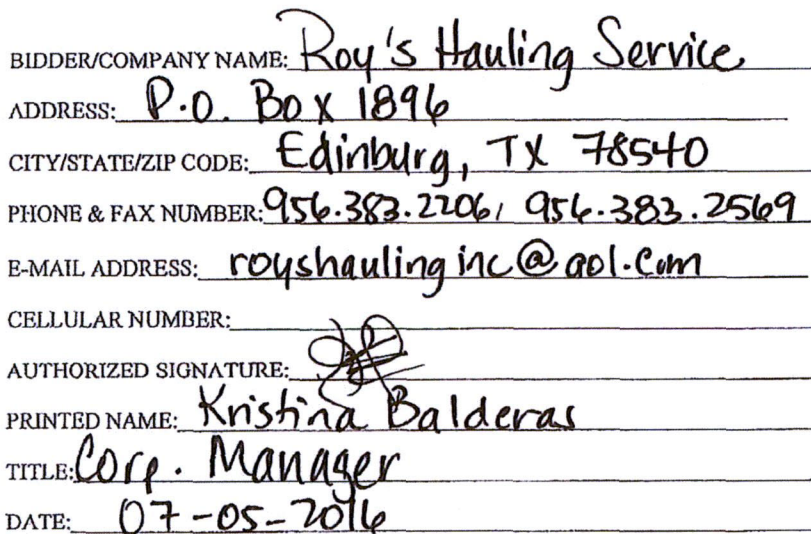 BIDDER/COMPANY NAME: Roy's Hauling Service
ADDRESS: P.O. Box 1896
CITY/STATE/ZIP CODE: Edinburg, TX 78540
PHONE & FAX NUMBER: 956.383.2206, 956.383.2569
E-MAIL ADDRESS: royshaulinginc@aol.com
CELLULAR NUMBER:
AUTHORIZED SIGNATURE:
PRINTED NAME: Kristina Balderas
TITLE: Corp. Manager
DATE: 07-05-2016